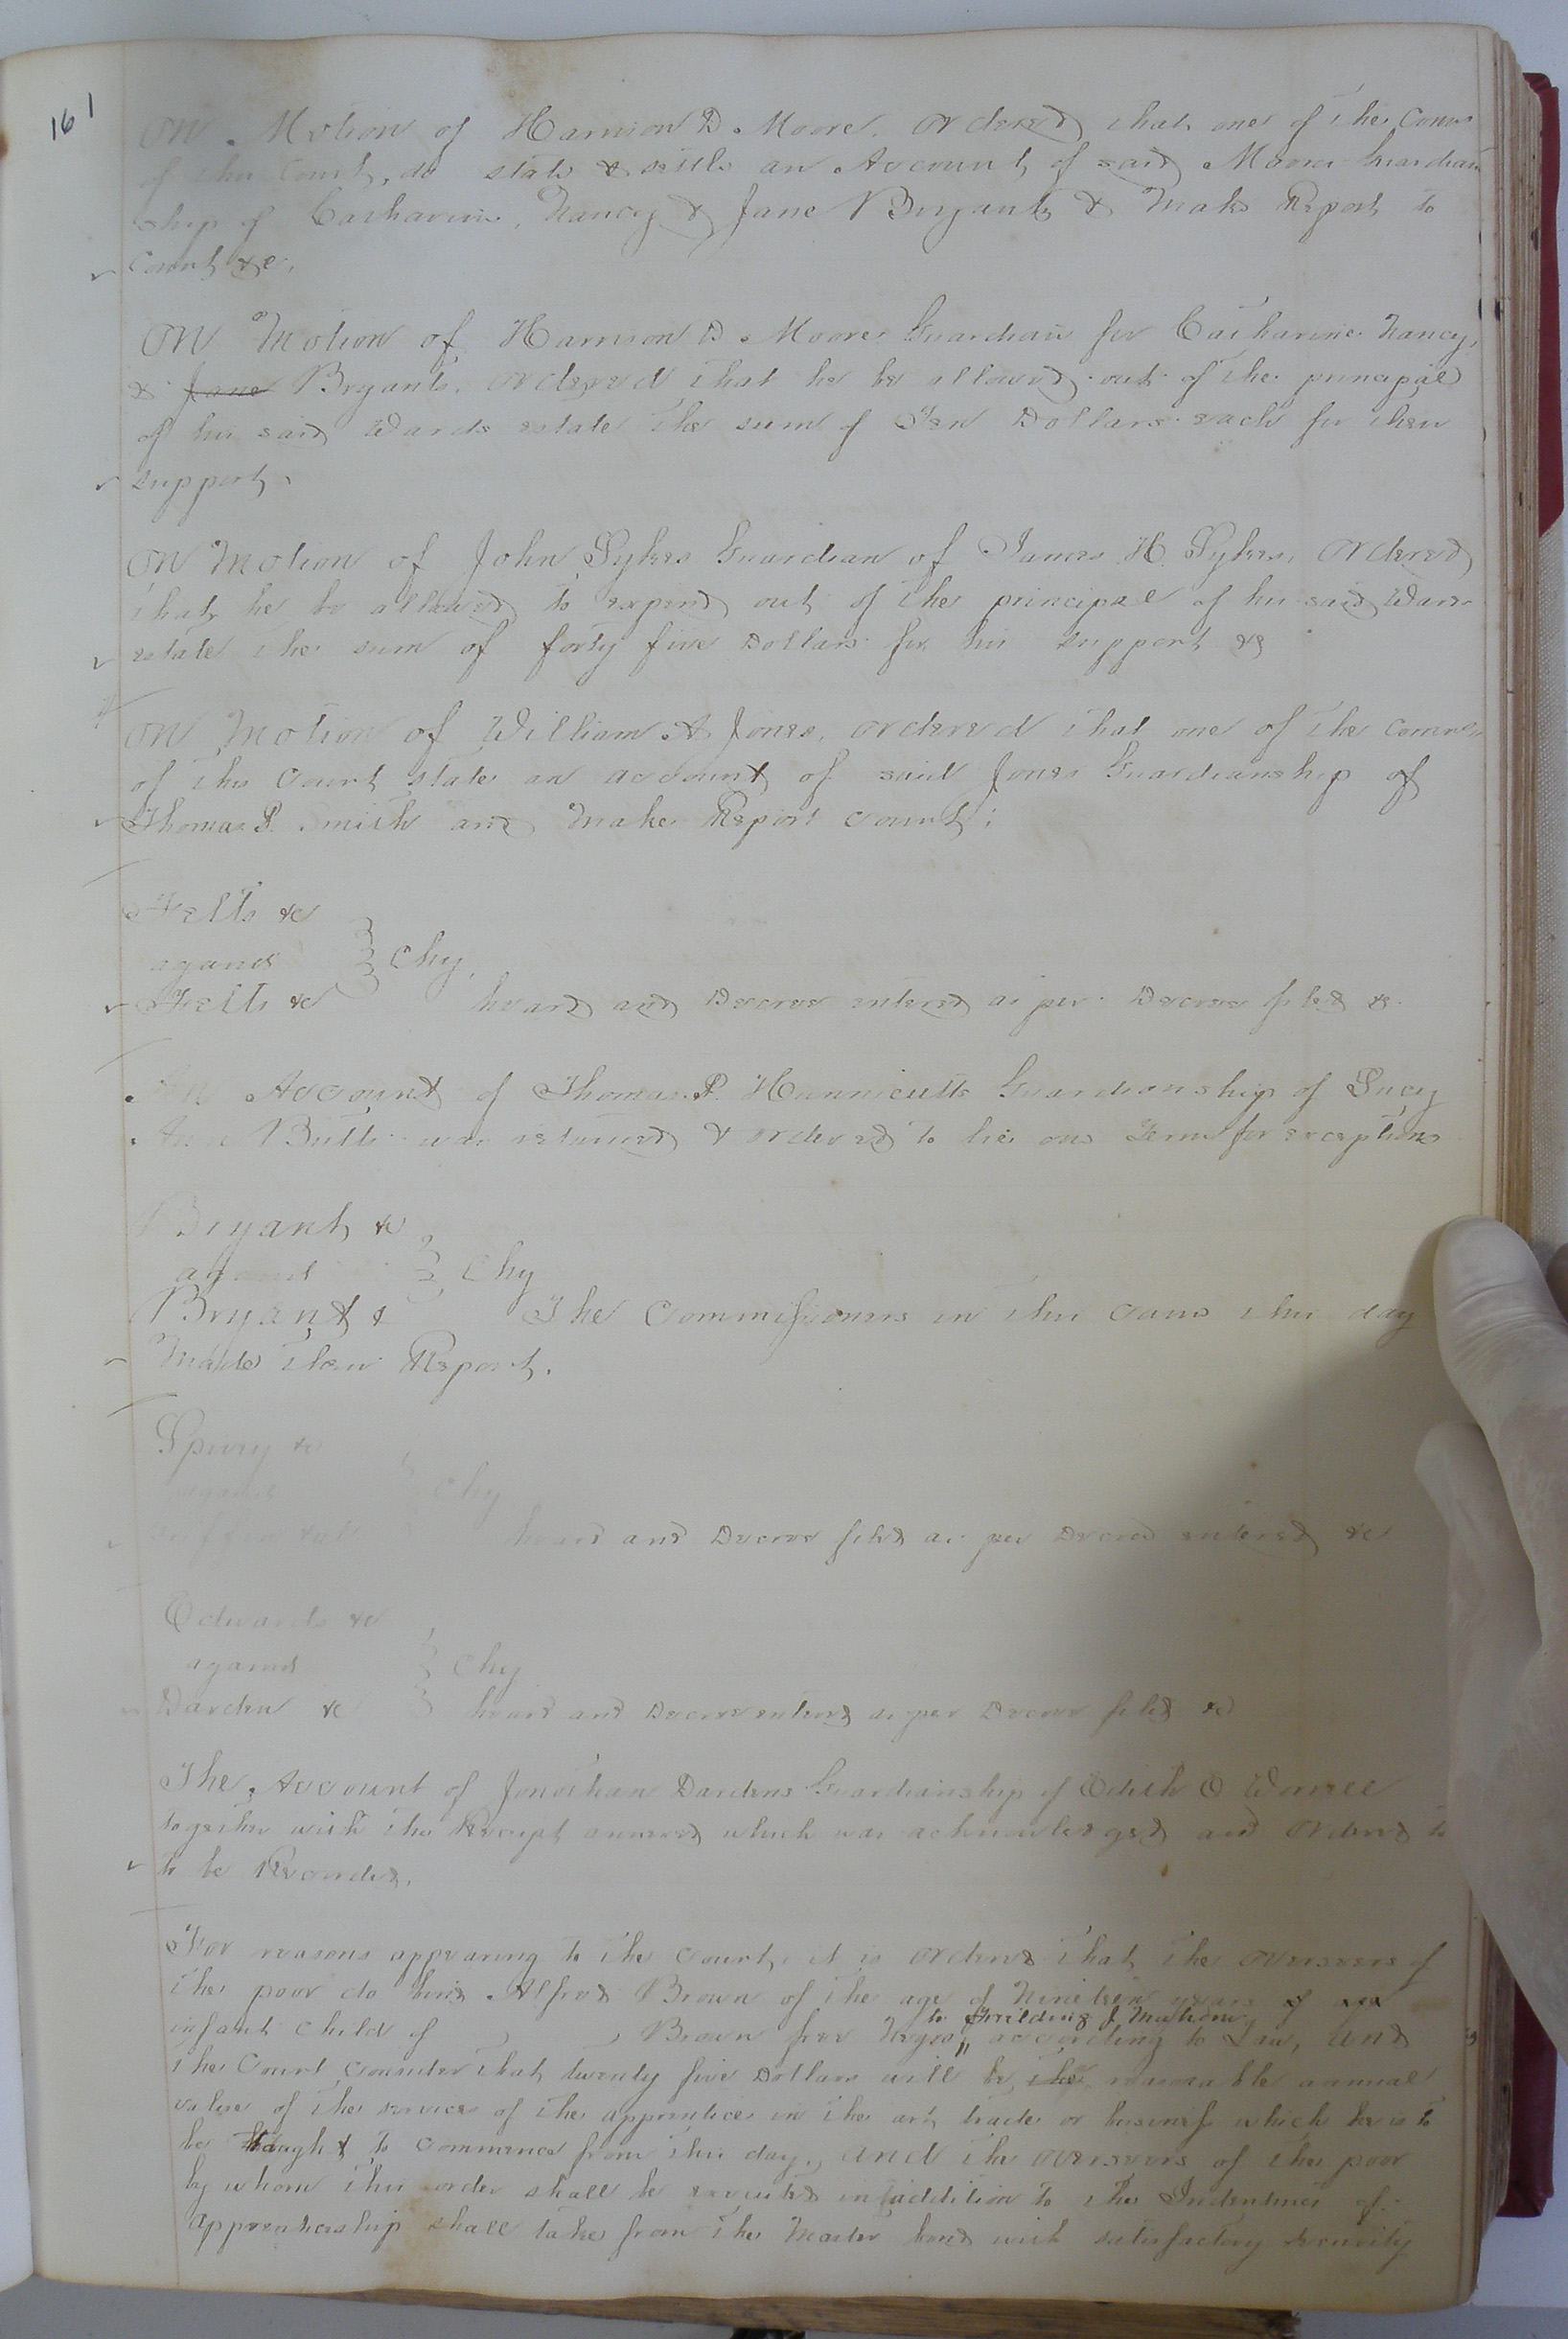 161
On Motion of Harrison D. Moore. Ordered that one of the Comrs
of this Court, do state & settle an Account of said Moores Guardian
ship of Catharine, Nancy & Jane Bryants & Make Report to
Court &c.
On Motion of Harrison D. Moore Guardian for Catharine Nancy,
& Jane Bryants. Ordered that he be allowed out of the principal
of his said Wards estate the sum of Ten Dollars each for their
support.
On Motion of John Sykes Guardian of James H. Sykes, Ordered
that he be allowed to expend out of the principal of his said Wards
estate the sum of forty five Dollars for his support &c
On Motion of William A Jones, Ordered that one of the Comrs
of this Court state an account of said Jones Guardianship of
Thomas P. Smith and Make Report Court;
Felts &c
against } Chy,
Felts &c heard and Decree entered as per Decree filed &c.
An Account of Thomas P. Hunnicutts Guardianship of Lucy
Ann Butts was returned & ordered to lie one Term for exceptions
Bryant &c
against } Chy
Bryant & The Commissioners in this cause this day
Made their Report.
Spivey &c
against Chy
heard and Decree filed as per Decree entered &c
Edwards &c
against } Chy
Darden &c heard and Decree entered as per Decree filed &c
The Account of Jonathan Dardens Guardianship of Edith O Worrell
together with the Receipt annexed which was acknowledged and Ordered to
to be Recorded.
For reasons appearing to the Court, it is Ordered that the Overseers of
the poor do bind Alfred Brown of the age of Nineteen years of age
to J. Mahone
infant child of Brown free Negro " according to Law, and
the Court consider that twenty five Dollars will be, the reasonable annual
value of the service of the apprentice in the art, trade or business which he is to
be taught to commence from this day, and the overseers of the poor
by whom this order shall be executed in addition to the Indentures of
apprenticeship shall take from the Master bond with satisfactory security